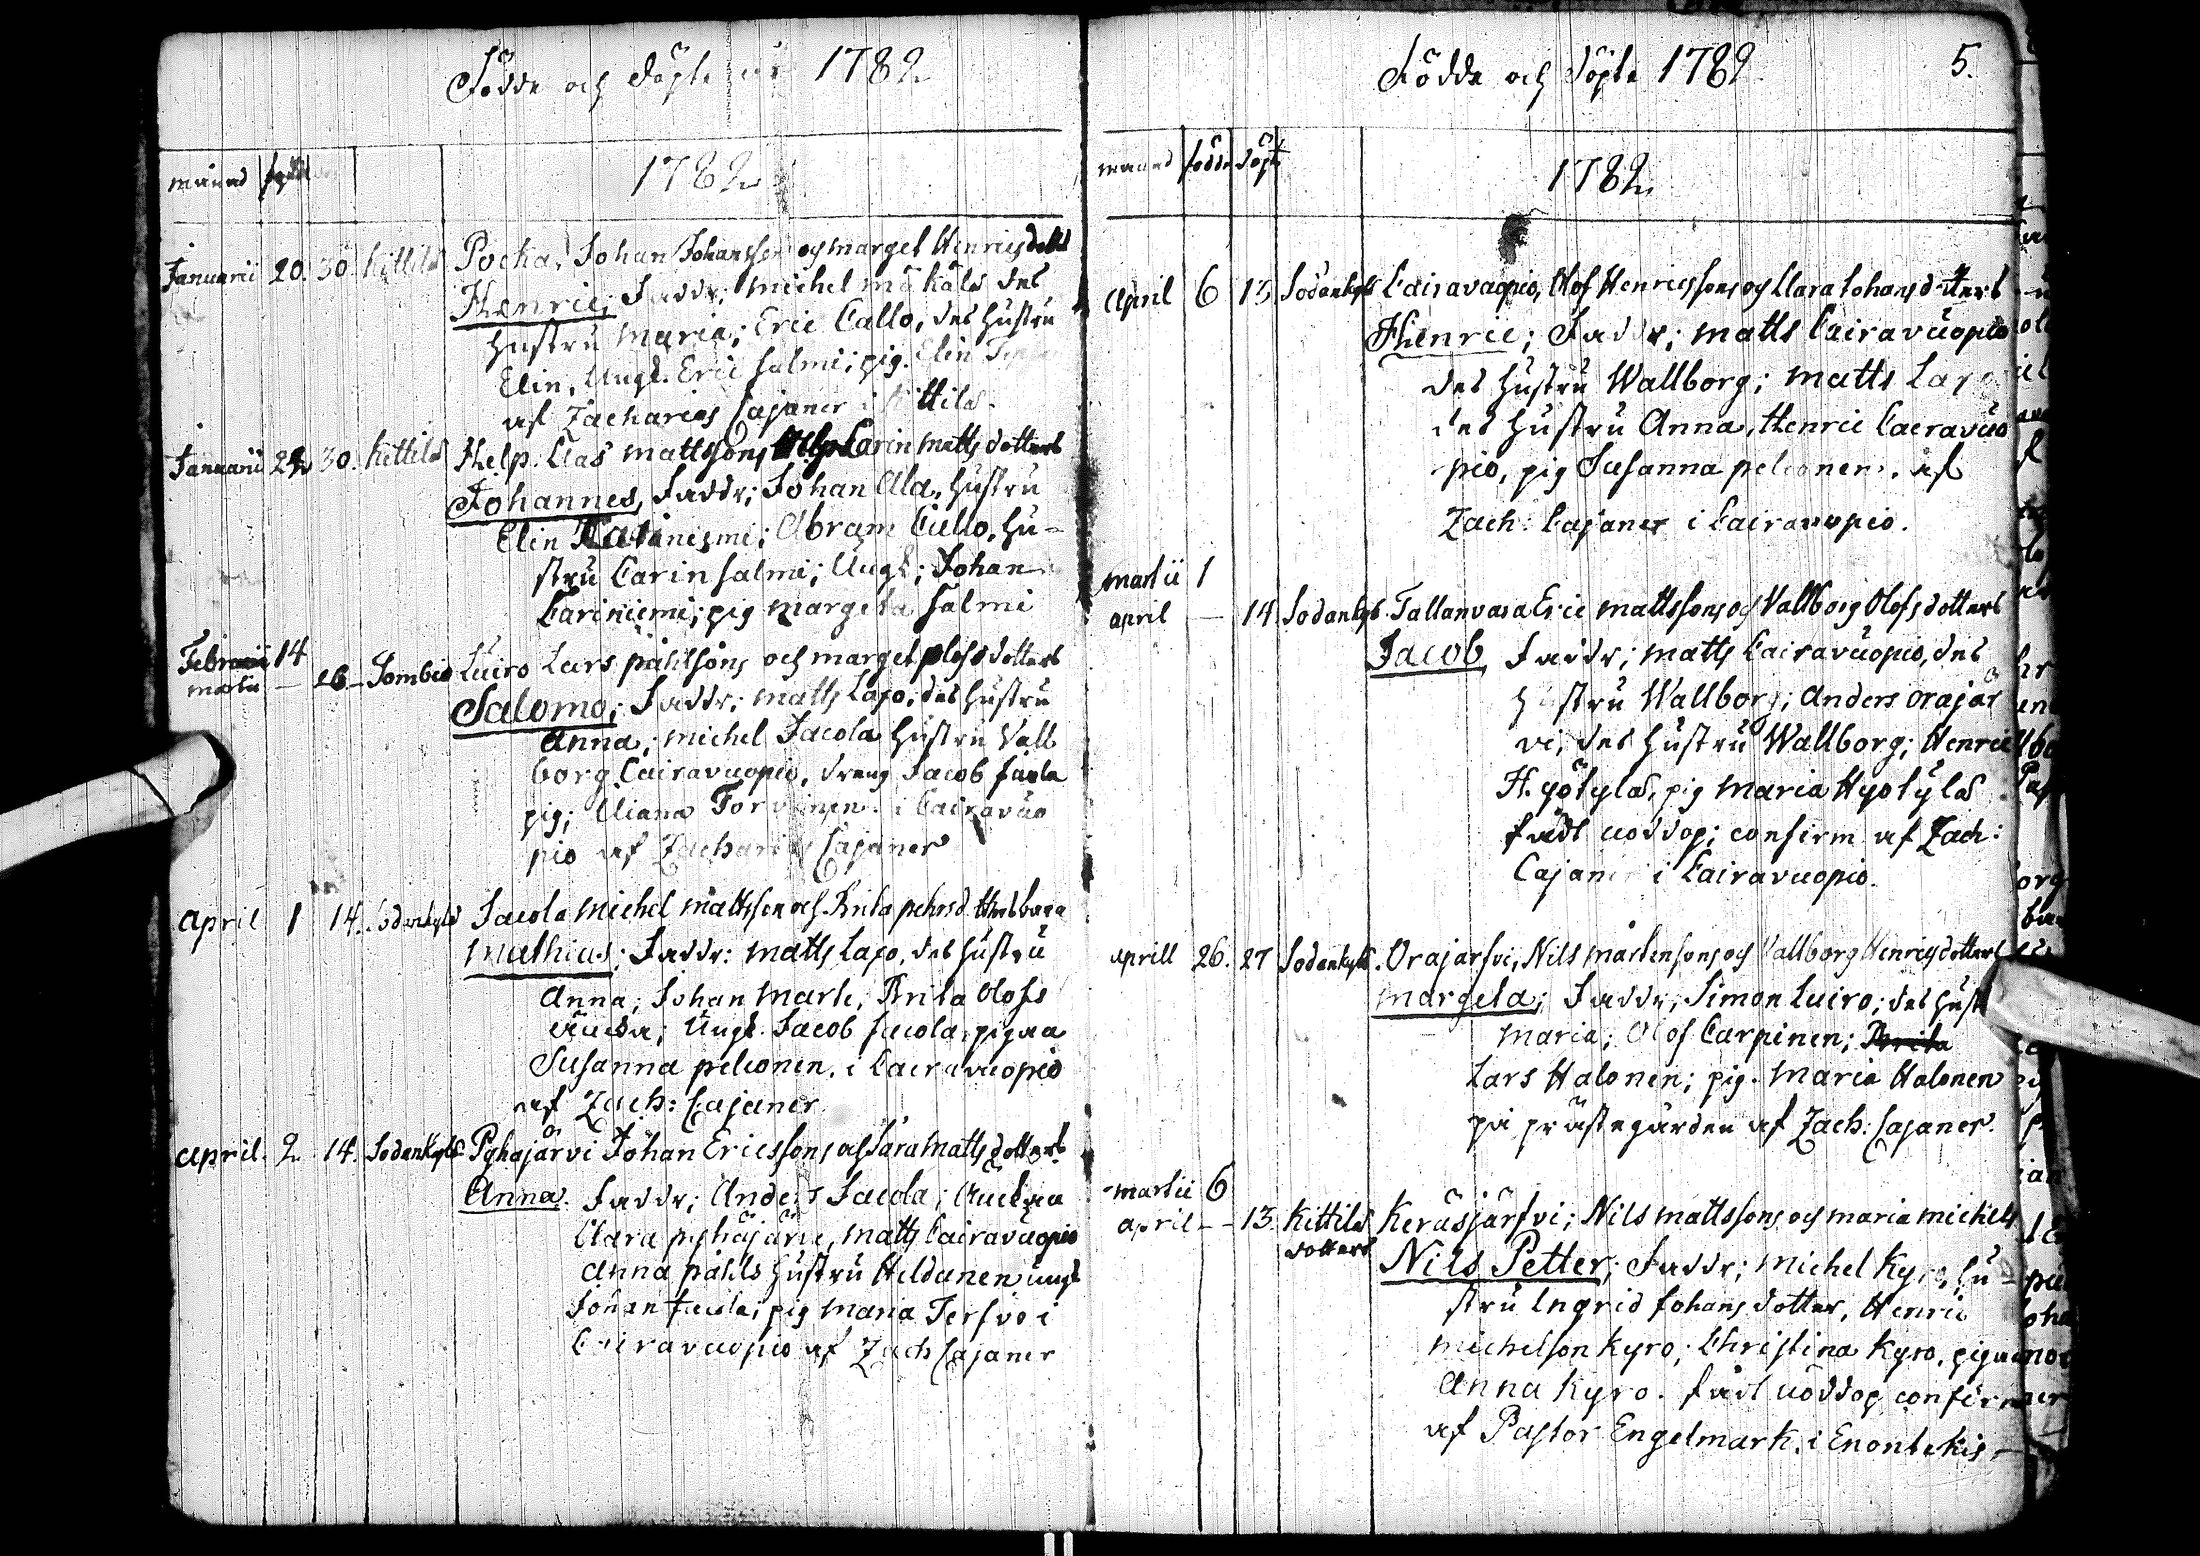 Födde och döpte år 1782
månad födde
1782
Januarii 20. 30. Kittilä Pocka, Johan Johansson och Marget Henricsdotters
Henric; Faddr; Michel Mökälä des
hustru Maria; Eric Callo, des hustru
Elin, Ungk. Eric Salmi; pig. Elin
af Zacharias Cajaner i Kittilä.
Januarii 24 30. Kittilä Help. Clas Mattssons Carin Mattsdotters
Johannes, Faddr; Johan Ala, hustru
Elin; Abram Callo, hu-
stru Carin Salmi; Ungk; Johan
Cariniemi; pig Margeta Salmi
Februarii 14
Martii — 26 — Sombio Luiro Lars Påhlsons och Marget Olofsdotters
Salomo; Faddr; Matts Lapo, des hustru
Anna; Michel Jacola hustru Vall
borg Cairavuopio, dreng Jacob
pig; Torvinen i Cairavuo
pio af Zacharias Cajaner
April 1 14. Sodankylä Jacola Michel Mattsson och Brita Pehrsd.
Mathias; Faddr: Matts Lapo, des hustru
Anna; Johan Mark, Brita Olofs
Änckia; Ungk. Jacob Jacola, pigaa
Susanna Pelconen. i Cairavuopio
af Zach: Cajaner
April. 2 14. Sodankylä Pyhäjärvi Johan Ericssons och Sara Mattsdotters
Anna. Faddr; Anders Jacola; Änckiaa
Clara Pyhäjärvi, Matts Cairavuopio
Anna Påhls hustru Heldanen ungk
Johan Jacola; pig Maria Terfvo i
Cairavuopio af Zach Cajaner
Födde och Döpte 1782. 5.
månad födde döpt
1782
April 6 13 Sodankylä Cairavuopio, Olof Henricssons och Clara Johansdotters
Henric; Faddr; Matts Cairavuopio
des hustru Wallborg; Matts Lapo
des hustru Anna, Henric Cairavuo
pio, pig Susanna Pelconen. af
Zach: Cajaner i Cairavuopio.
Martii 1
April — 14. Sodankylä. Tallanvara Eric Mattssons och Vallborg Olofsdotters
Jacob Faddr; Matts Cairavuopio, des
hustru Wallborg; Anders Orajär
vi, des hustru Wallborg; Henric
Hyötylä, pig Maria Hyötylä
födt nöddop; confirm af Zach:
Cajaner i Cairavuopio.
Aprill 26. 27 Sodankylä. Orajarfvi, Nils Mårtensons och Vallborg Henricsdotters
Margeta; Faddr, Simon Luiro; des hust
Maria; Olof Carpinen; Brita
Lars Halonen; pig. Maria Halonen
på prästegården af Zach: Cajaner.
Martii 6
April — 13. Kittilä Keräsjärfvi; Nils Mattssons och Maria Michels
dotters Nils Petter; Faddr; Michel Kyrö, hu-
stru Ingrid Johans dotter, Henric
Michelson Kyro; Christina Kyro, pigaa
Anna Kyro. födt nöddop confirm
af Pastor Engelmark. i Enontekis —